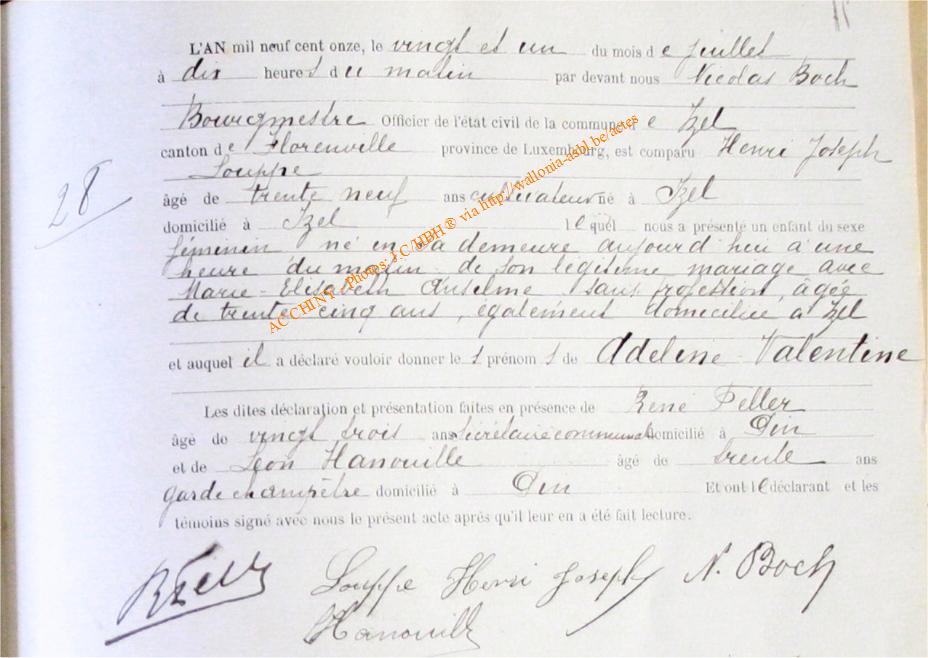 L'AN mil neuf cent onze, le vingt et un du mois de juillet
à dix heures du matin par devant nous Nicolas Boch
Bourgmestre Officier de l'état civil de la commune de Izel
canton de Florenville province de Luxembourg, est comparu Henri Joseph
Louppe
28
âgé de trente neuf ans cultivateur né à Izel
domicilié à Izel lequel nous a présenté un enfant du sexe
féminin né en sa demeure aujourd'hui à une
heure du matin de son légitime mariage avec
Marie-Elisabeth Anselme sans profession, âgée
de trente cinq ans, également domiciliée à Izel
et auquel il a déclaré vouloir donner les prénoms de Adeline Valentine
Les dites déclaration et présentation faites en présence de René Peller
âgé de vingt trois ans secrétaire communal domicilié à Pin
et de Léon Hanouille âgé de trente ans
garde champêtre domicilié à Pin Et ont le déclarant et les
témoins signé avec nous le présent acte après qu'il leur en a été fait lecture.
Louppe Henri Joseph N. Boch
Hanouille
ACCHINY Photos: J.C/HBH® via http://wallonia-asbl.be/actes